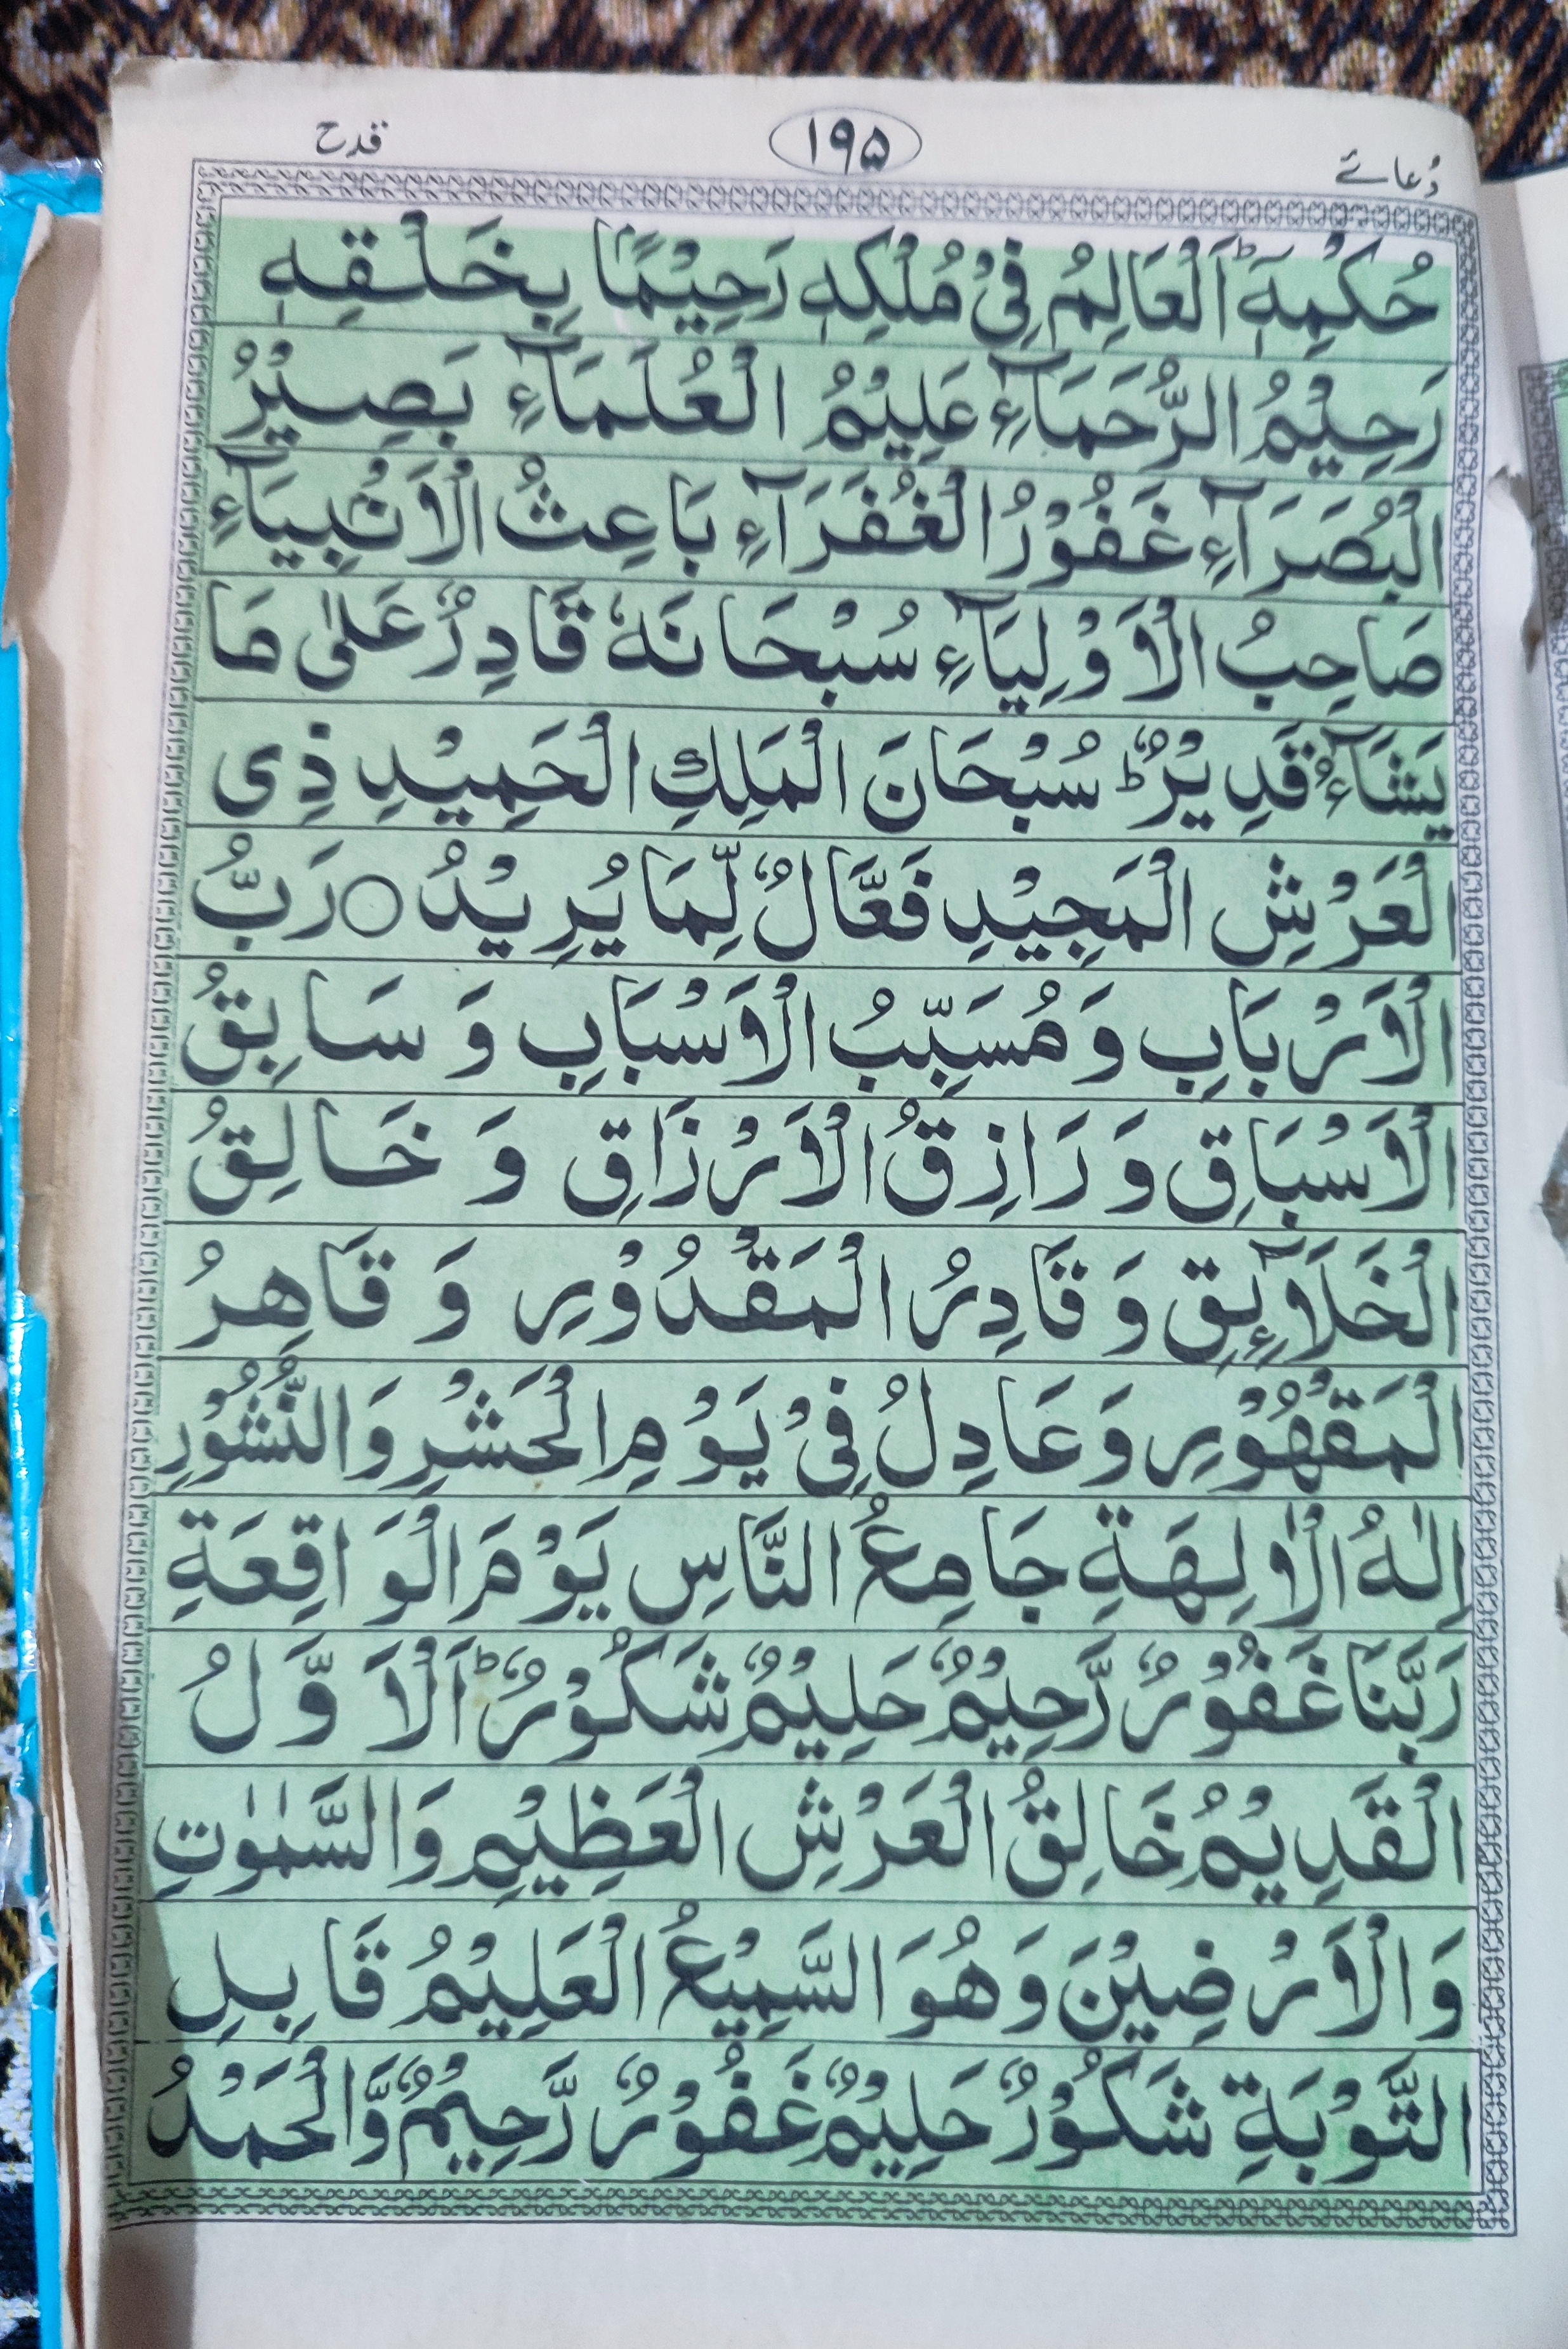 دُعائے ۱۹۵ قدح
حُكْمِهٖٓ ؕ اَلْعَالِمُ فِیْ مُلْكِهٖ رَحِیْمًا بِخَلْقِهٖ
رَحِیْمُ الرُّحَمَآءِ عَلِیْمُ الْعُلَمَآءِ بَصِیْرُ
الْبُصَرَآءِ غَفُوْرُ الْغُفَرَآءِ بَاعِثُ الْاَنْۢبِیَآءِ
صَاحِبُ الْاَوْلِیَآءِ سُبْحَانَهٗ قَادِرٌ عَلٰی مَا
یَشَآءُ قَدِیْرٌ ؕ سُبْحَانَ الْمَلِكِ الْحَمِیْدِ ذِی
الْعَرْشِ الْمَجِیْدِ فَعَّالٌ لِّمَا یُرِیْدُ ○ رَبُّ
الْاَرْبَابِ وَ مُسَبِّبُ الْاَسْبَابِ وَ سَابِقُ
الْاَسْبَاقِ وَ رَازِقُ الْاَرْزَاقِ وَ خَالِقُ
الْخَلَآئِقِ وَ قَادِرُ الْمَقْدُوْرِ وَ قَاهِرُ
الْمَقْهُوْرِ وَ عَادِلُ فِیْ یَوْمِ الْحَشْرِ وَالنُّشُوْرِ
اِلٰهُ الْاٰلِهَةِ جَامِعُ النَّاسِ یَوْمَ الْوَاقِعَةِ
رَبَّنَا غَفُوْرٌ رَّحِیْمٌ حَلِیْمٌ شَكُوْرٌ ؕ اَلْاَوَّلُ
الْقَدِیْمُ خَالِقُ الْعَرْشِ الْعَظِیْمِ وَالسَّمٰوٰتِ
وَالْاَرْضِیْنَ وَهُوَ السَّمِیْعُ الْعَلِیْمُ قَابِلِ
التَّوْبَةِ شَكُوْرٌ حَلِیْمٌ غَفُوْرٌ رَّحِیْمٌ وَّالْحَمْدُ